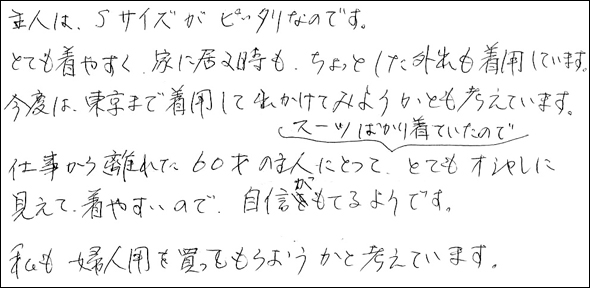 主人は、Sサイズがピッタリなのです。
とても着やすく、家に居る時も、ちょっとした外出も着用しています。
今度は、東京まで着用して出かけてみようかとも考えています。
スーツばかり着ていたので
仕事から離れた60才の主人にとって、とてもオシャレに
見えて、着やすいので、自信がもてるようです。
私も婦人用を買ってもらおうかと考えています。